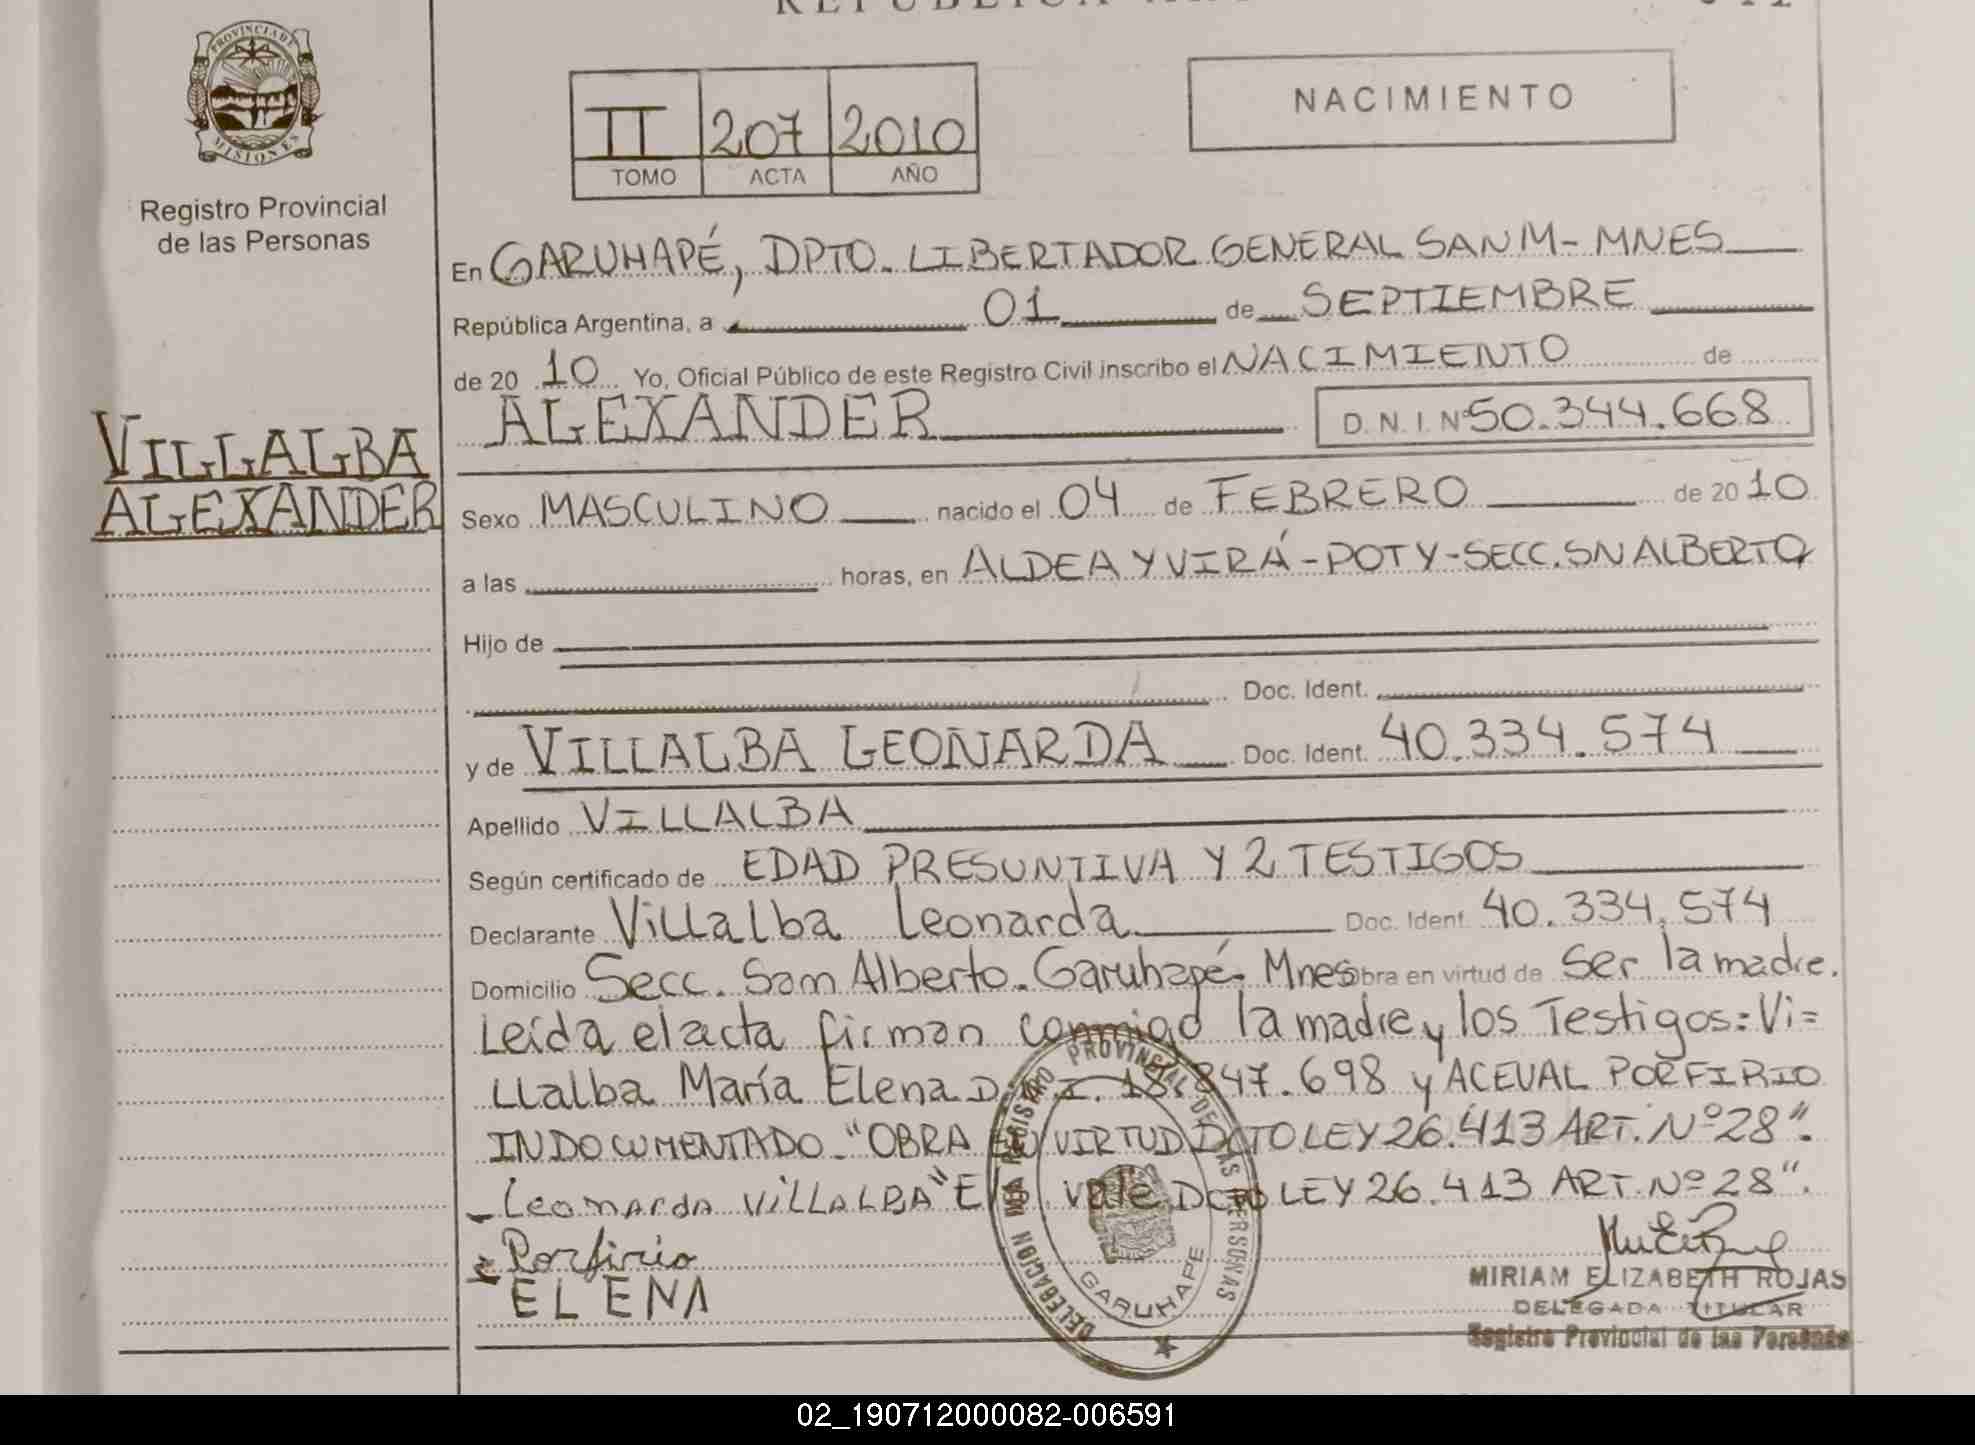 REPÚBLICA
PROVINCIA DE
MISIONES
Registro Provincial
de las Personas
II 207 2010
TOMO ACTA AÑO
NACIMIENTO
En GARUHAPÉ, DPTO. LIBERTADOR GENERAL SAN M- MNES
República Argentina, a 01 de SEPTIEMBRE
de 20 10 Yo, Oficial Público de este Registro Civil inscribo el NACIMIENTO de
ALEXANDER D.N.I. Nº 50.344.668
VILLALBA
ALEXANDER
Sexo MASCULINO nacido el 04 de FEBRERO de 20 10
a las horas, en ALDEA YVIRÁ-POTY-SECC. SN ALBERTO
Hijo de
Doc. Ident.
y de VILLALBA LEONARDA Doc. Ident. 40.334.574
Apellido VILLALBA
Según certificado de EDAD PRESUNTIVA Y 2 TESTIGOS
Declarante Villalba Leonarda Doc. Ident. 40.334.574
Domicilio Secc. San Alberto. Garuhapé- Mnes Obra en virtud de Ser la madre.
Leída el acta firman conmigo la madre y los Testigos: Vi=
llalba María Elena D.N.I. 18.847.698 y ACEVAL PORFIRIO
INDOCUMENTADO. "OBRA EN VIRTUD DCTO LEY 26.413 ART. Nº 28".
- Leonarda VILLALBA "E/L. vale DCTO LEY 26.413 ART. Nº 28".
Porfirio
ELENA
DELEGACION REGISTRO PROVINCIAL DE LAS PERSONAS
GARUHAPE
MIRIAM ELIZABETH ROJAS
DELEGADA TITULAR
Registro Provincial de las Personas
02_190712000082-006591